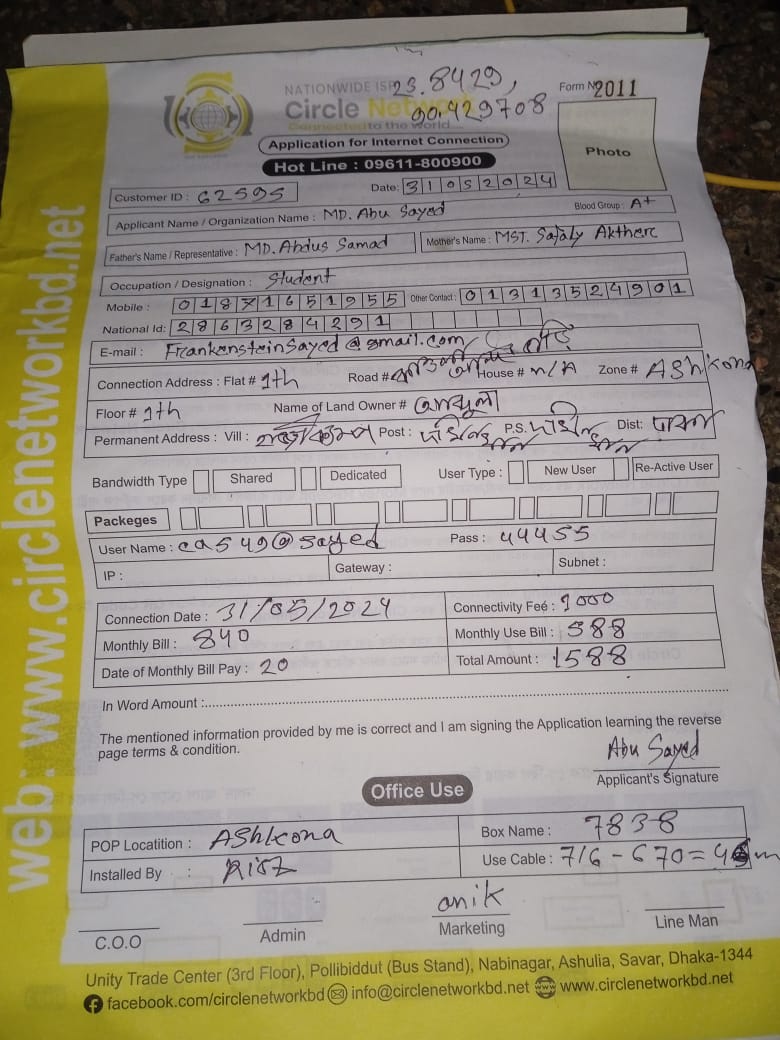 23.8429,
NATIONWIDE ISP
Form No 2011
Circle Network
90.429708
Connected to the world....
Application for Internet Connection
Photo
Hot Line : 09611-800900
Customer ID : 62595 Date: 31052024
Applicant Name / Organization Name : MD. Abu Sayed Blood Group : A+
Father's Name / Representative : MD. Abdus Samad Mother's Name : MST.
Occupation / Designation : Student
Mobile : 01871651955 Other Contact : 01313524901
National Id: 2863284291
E-mail : Frankensteinsayed@gmail.com
Connection Address : Flat # 1th Road # House # n/A Zone # AShkona
Floor # 1th Name of Land Owner #
Permanent Address : Vill : Post : P.S. Dist:
Bandwidth Type Shared Dedicated User Type : New User Re-Active User
Packeges
User Name : ca549@sayed Pass : 44455
IP : Gateway : Subnet :
Connection Date : 31/05/2024 Connectivity Feé : 1000
Monthly Bill : 840 Monthly Use Bill : 588
Date of Monthly Bill Pay : 20 Total Amount : 1588
In Word Amount :
The mentioned information provided by me is correct and I am signing the Application learning the reverse
page terms & condition.
Abu Sayed
Applicant's Signature
Office Use
POP Locatition : AShkona Box Name : 7838
Installed By : Use Cable : 716-670=
anik
C.O.O Admin Marketing Line Man
Unity Trade Center (3rd Floor), Pollibiddut (Bus Stand), Nabinagar, Ashulia, Savar, Dhaka-1344
facebook.com/circlenetworkbd info@circlenetworkbd.net www.circlenetworkbd.net
web: www.circlenetworkbd.net